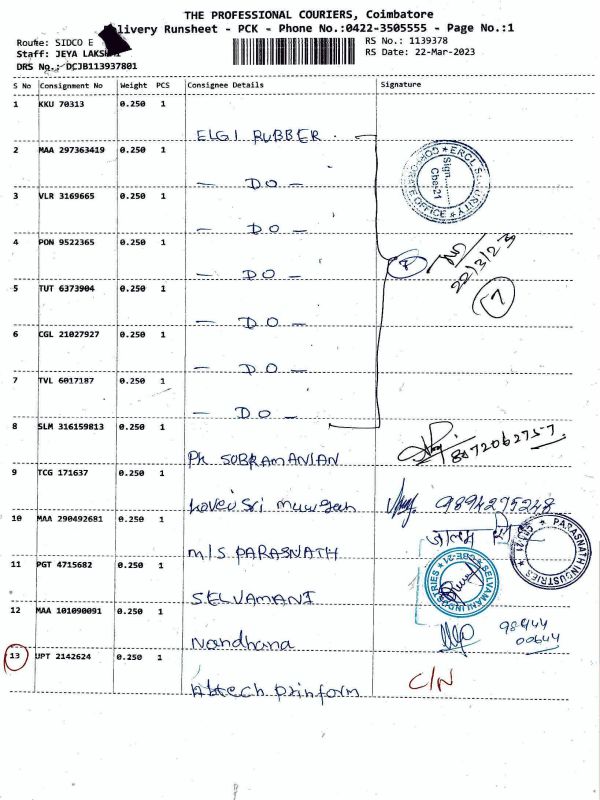 THE PROFESSIONAL COURIERS, Coimbatore
livery Runsheet - PCK - Phone No.:0422-3505555 - Page No.:1
Route: SIDCO E
RS No.: 1139378
Staff: JEYA LAKSHMI
RS Date: 22-Mar-2023
DRS No.: DCJB113937801
S No Consignment No Weight PCS Consignee Details Signature
1 KKU 70313 0.250 1
ELGI RUBBER
2 MAA 297363419 0.250 1
— DO —
3 VLR 3169665 0.250 1
— DO —
4 PON 9522365 0.250 1
— DO —
5 TUT 6373904 0.250 1
— DO —
6 CGL 21027927 0.250 1
— DO —
7 TVL 6017187 0.250 1
— DO —
ERCL SECURITY
CORPORATE OFFICE
Sign
Cbe-21
22/3/23
7
8 SLM 316159813 0.250 1
PK SUBRAMANIAN
8072062757
9 TCG 171637 0.250 1
Sri
9894275248
10 MAA 290492681 0.250 1
M/S. PARASNATH
PARASNATH INDUSTRIES
CBE-21
11 PGT 4715682 0.250 1
SELVAMANI
SELVAMANI INDUSTRIES
CBE-21
12 MAA 101090091 0.250 1
Nandhana
98444
00644
13 UPT 2142624 0.250 1
C/N